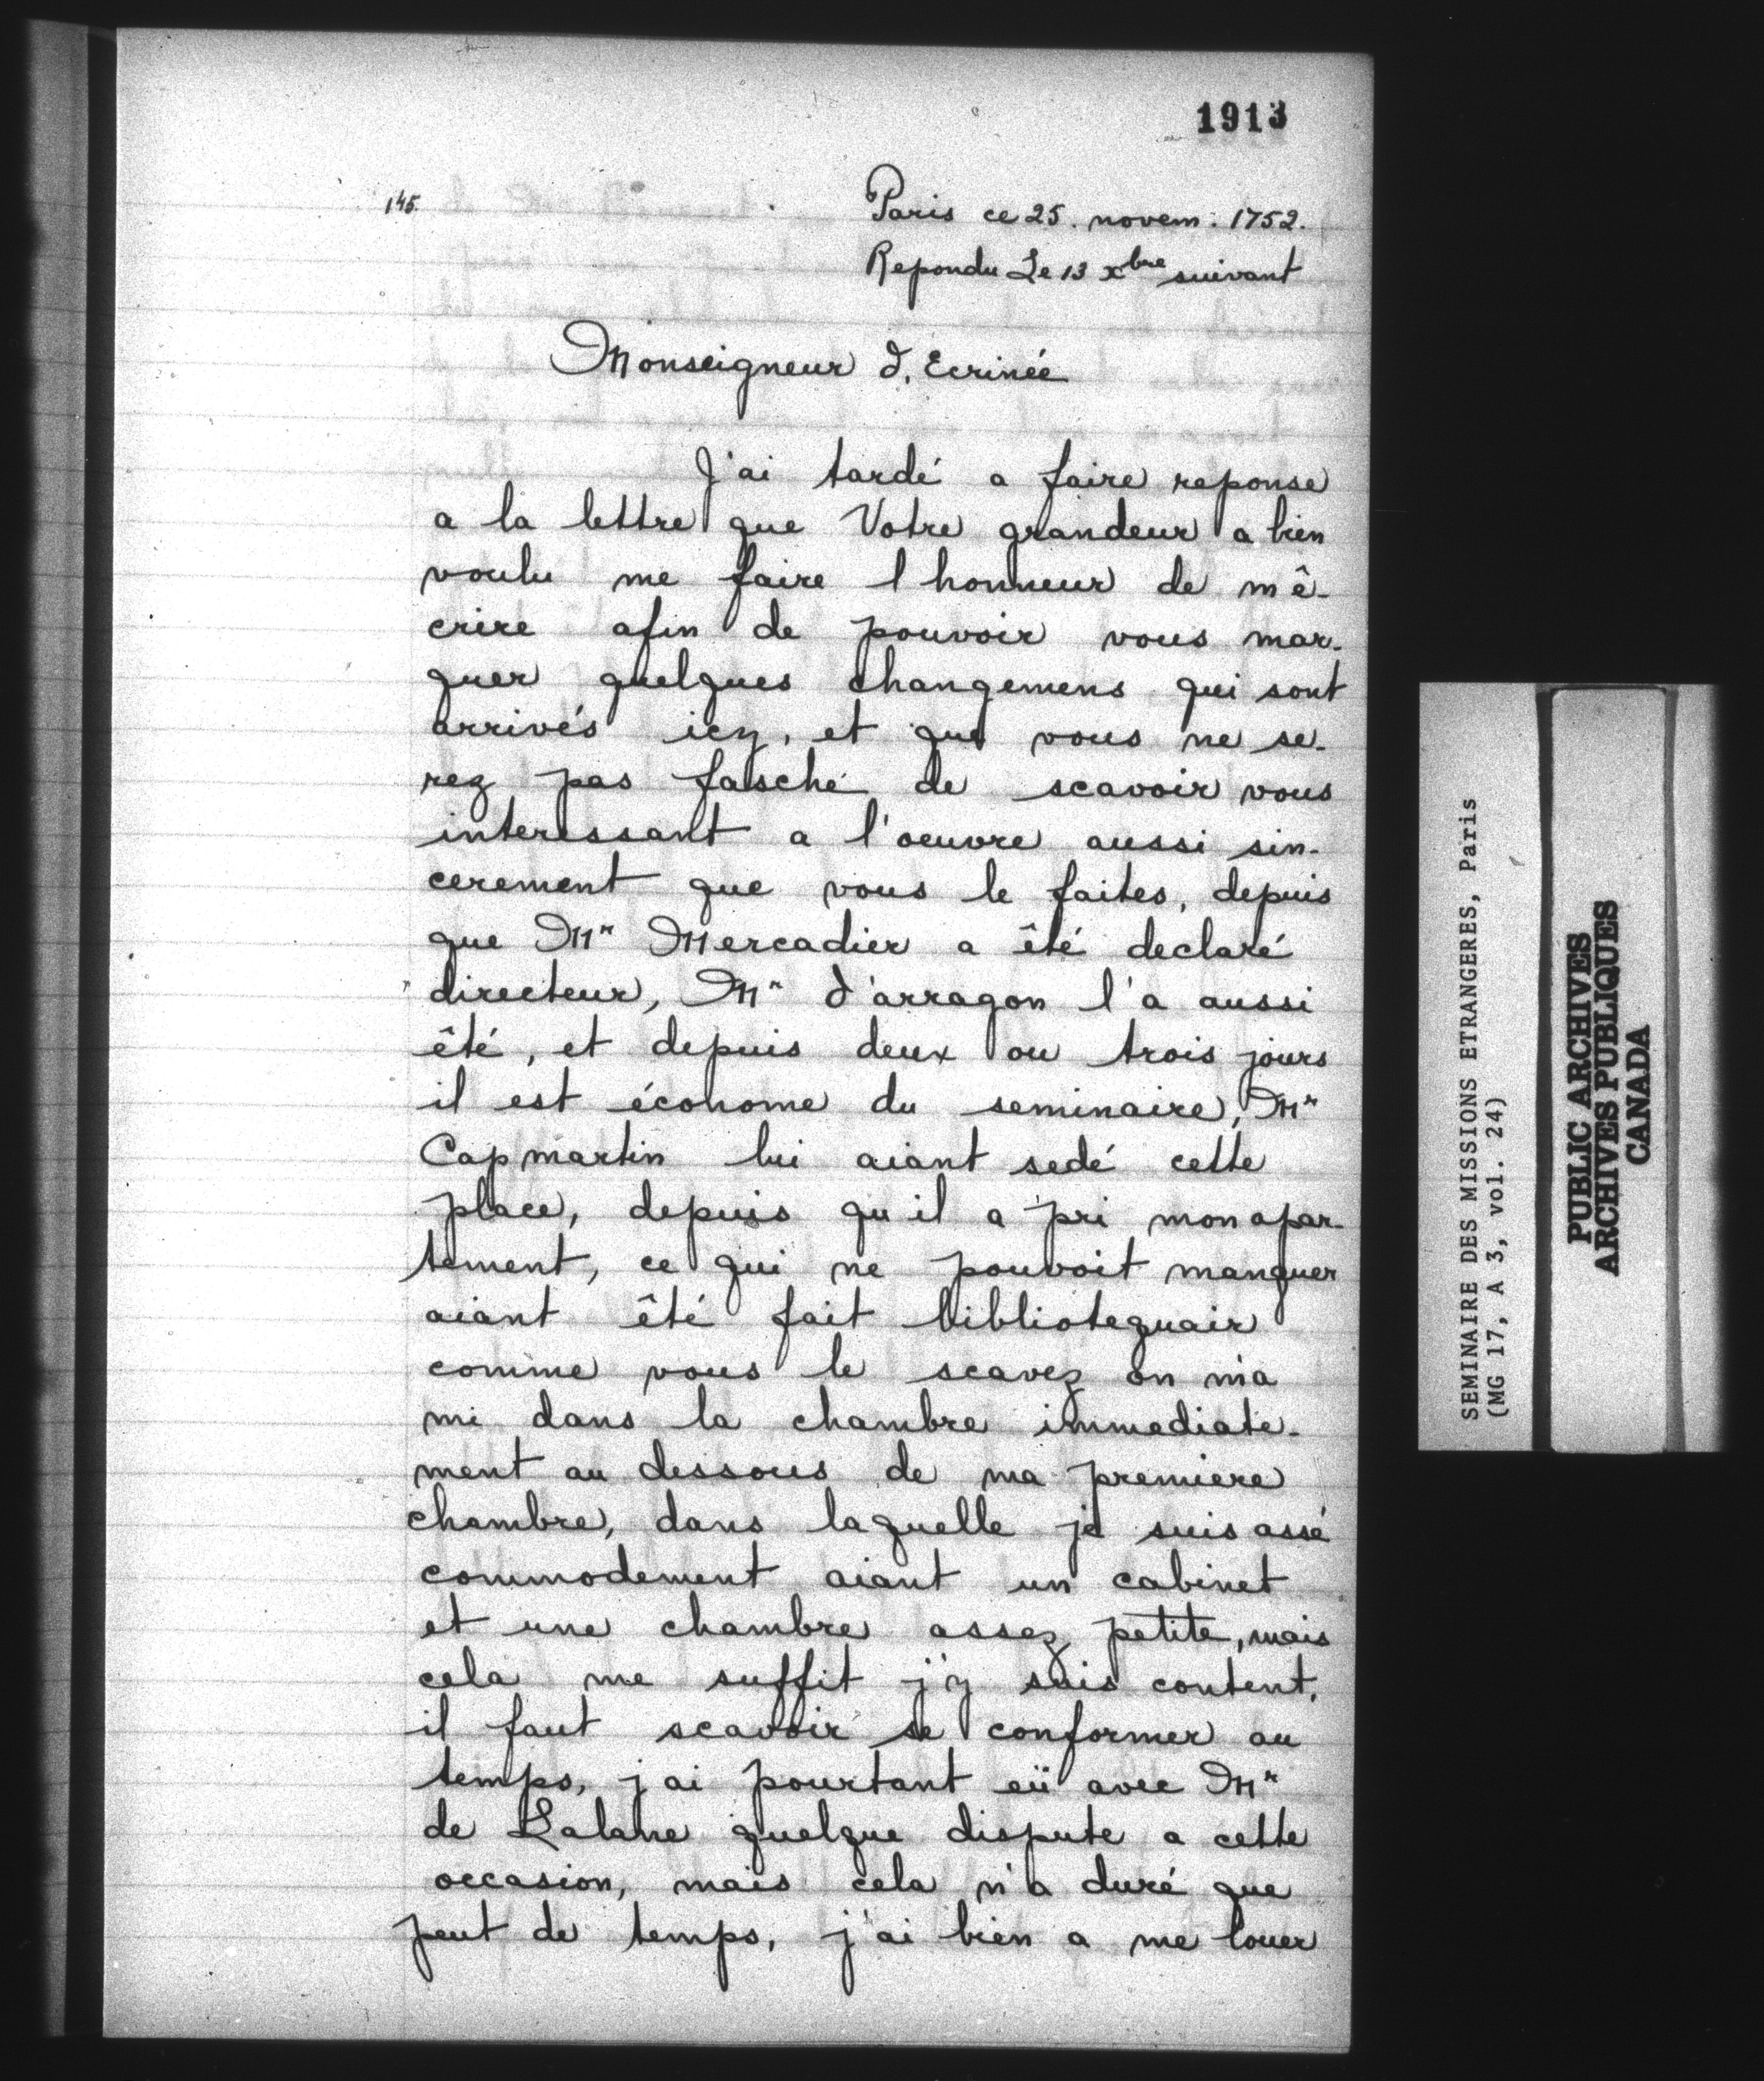 1913
145.
Paris ce 25. novem: 1752.
Repondu Le 13 xbre suivant
Monseigneur d. Ecrinée
J'ai tardé a faire reponse
a la lettre que Votre grandeur a bien
voulu me faire l honneur de mê-
crire afin de pouvoir vous mar-
quer quelques changemens qui sont
arrivés icy, et que vous ne se-
rez pas fasché de scavoir vous
interessant a l'oeuvre aussi sin-
cerement que vous le faites, depuis
que Mr Mercadier a êté declaré
directeur, Mr d'arragon l'a aussi
êté, et depuis deux ou trois jours
il est économe du seminaire, Mr
Capmartin lui aiant sedé cette
place, depuis qu il a pri mon apar-
tement, ce qui ne pouvoit manquer
aiant êté fait bibliotequair
comme vous le scavez on m'a
mi dans la chambre immediate-
ment au dessous de ma premiere
chambre, dans laquelle je suis assé
commodement aiant un cabinet
et une chambre assez petite, mais
cela me suffit j'y suis content,
il faut scavoir se conformer au
temps, j ai pourtant eü avec Mr
de Lalane quelque dispute a cette
occasion, mais cela n'a duré que
peut de temps, j'ai bien a me louer
SEMINAIRE DES MISSIONS ETRANGERES, Paris
(MG 17, A 3, vol. 24)
PUBLIC ARCHIVES
ARCHIVES PUBLIQUES
CANADA